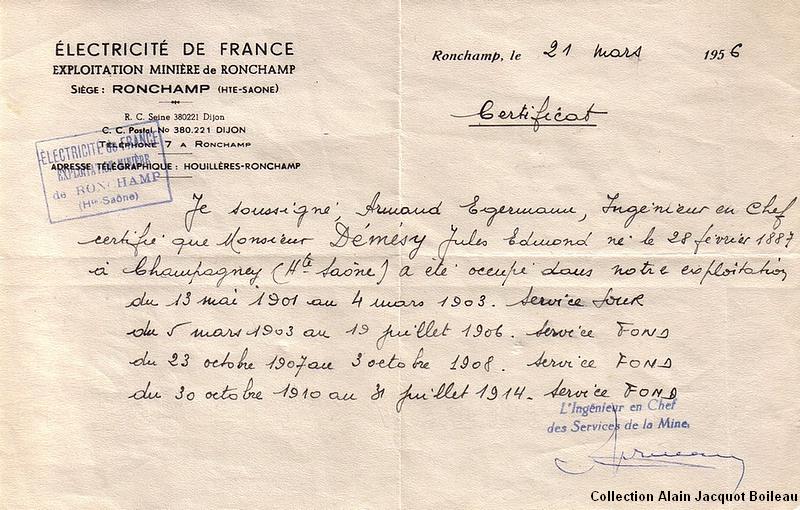 ÉLECTRICITÉ DE FRANCE
EXPLOITATION MINIÈRE de RONCHAMP
SIÈGE : RONCHAMP (HTE-SAONE)
R. C. Seine 380221 Dijon
C. C. Postal No 380.221 DIJON
TÉLÉPHONE 7 A RONCHAMP
ADRESSE TÉLÉGRAPHIQUE : HOUILLÈRES-RONCHAMP
ÉLECTRICITÉ de FRANCE
EXPLOITATION MINIÈRE
de RONCHAMP
(Hte-Saône)
Ronchamp, le 21 mars 1956
Certificat
Je soussigné, Armand Egermann, Ingénieur en Chef
certifie que Monsieur Démésy Jules Edmond né le 28 février 1887
à Champagney (Hte Saône) a été occupé dans notre exploitation
du 13 mai 1901 au 4 mars 1903. Service JOUR
du 5 mars 1903 au 19 juillet 1906. Service FOND
du 23 octobre 1907 au 3 octobre 1908. Service FOND
du 30 octobre 1910 au 31 juillet 1914. Service FOND
L'Ingénieur en Chef
des Services de la Mine,
Collection Alain Jacquot Boileau